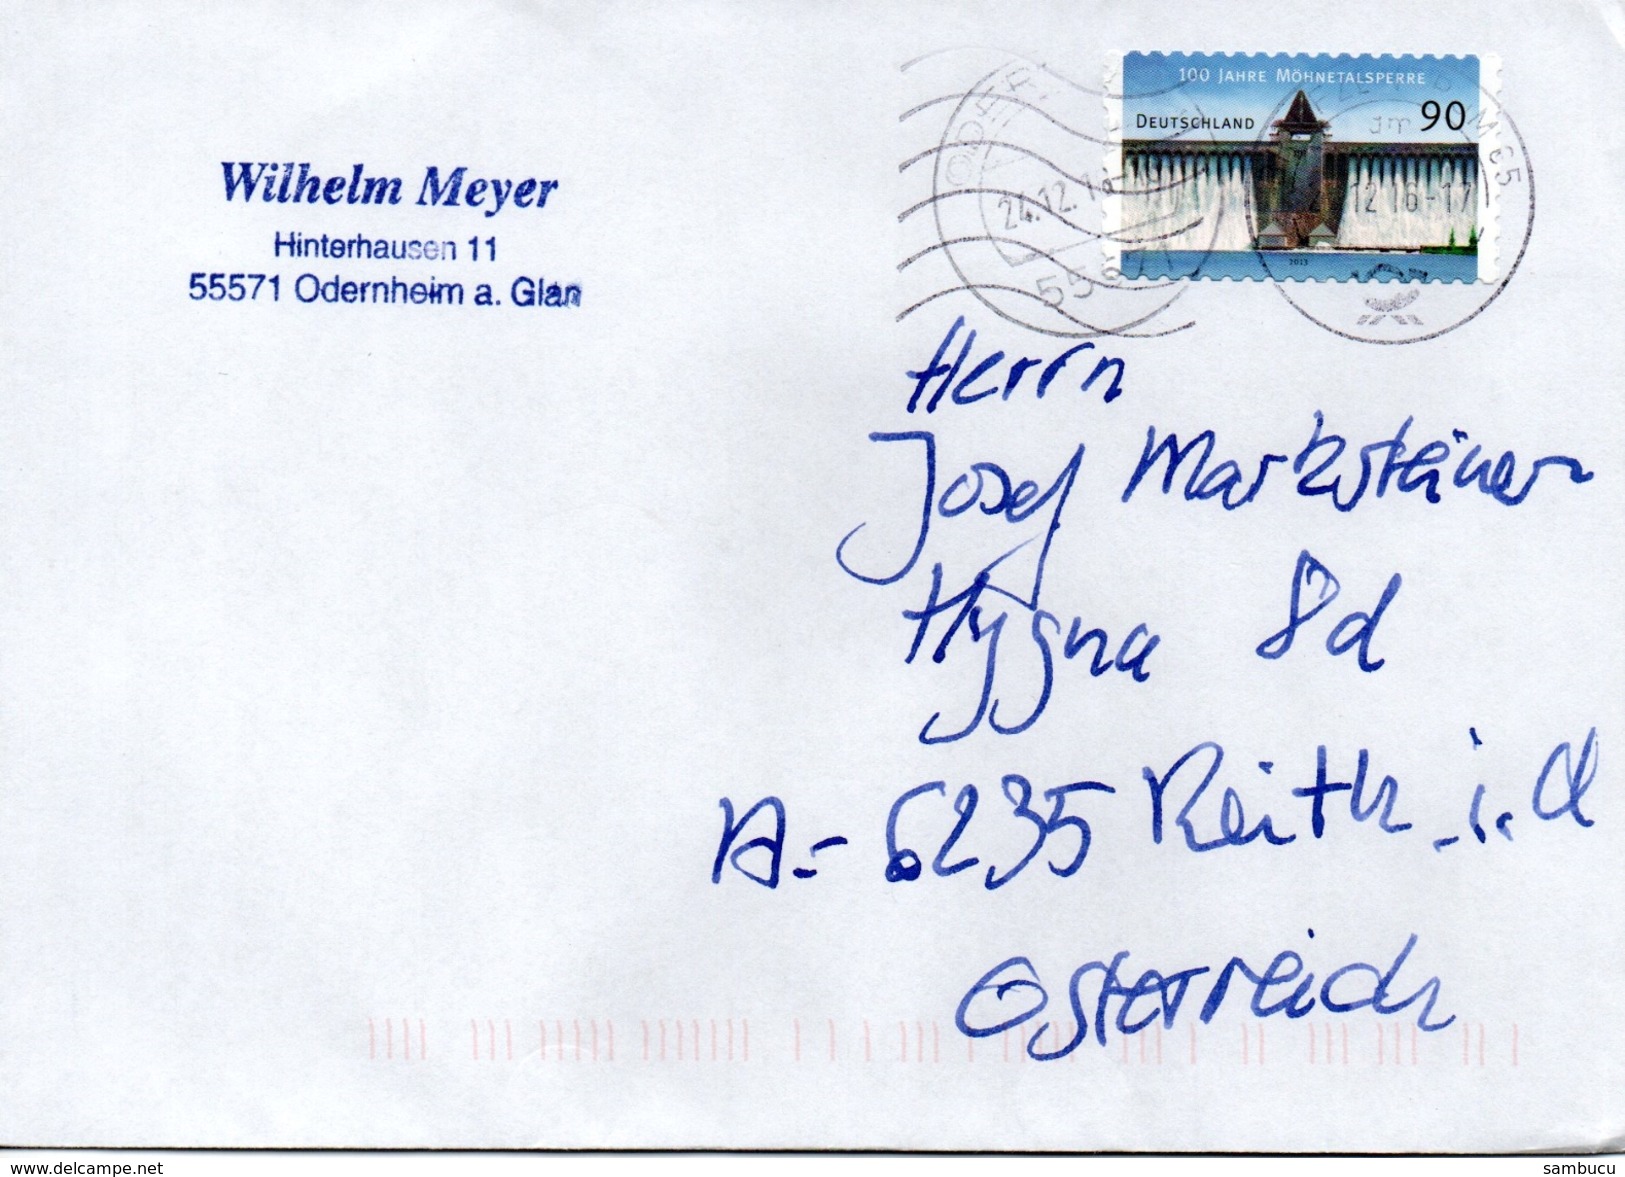 100 JAHRE MÖHNETALSPERRE
DEUTSCHLAND 90
2013
24.12.1
12 16-17
Wilhelm Meyer
Hinterhausen 11
55571 Odernheim a. Glan
Herrn
Josef Marksteiner
Hygna 8d
A-6235 Reith i. A
Österreich
www.delcampe.net
sambucu